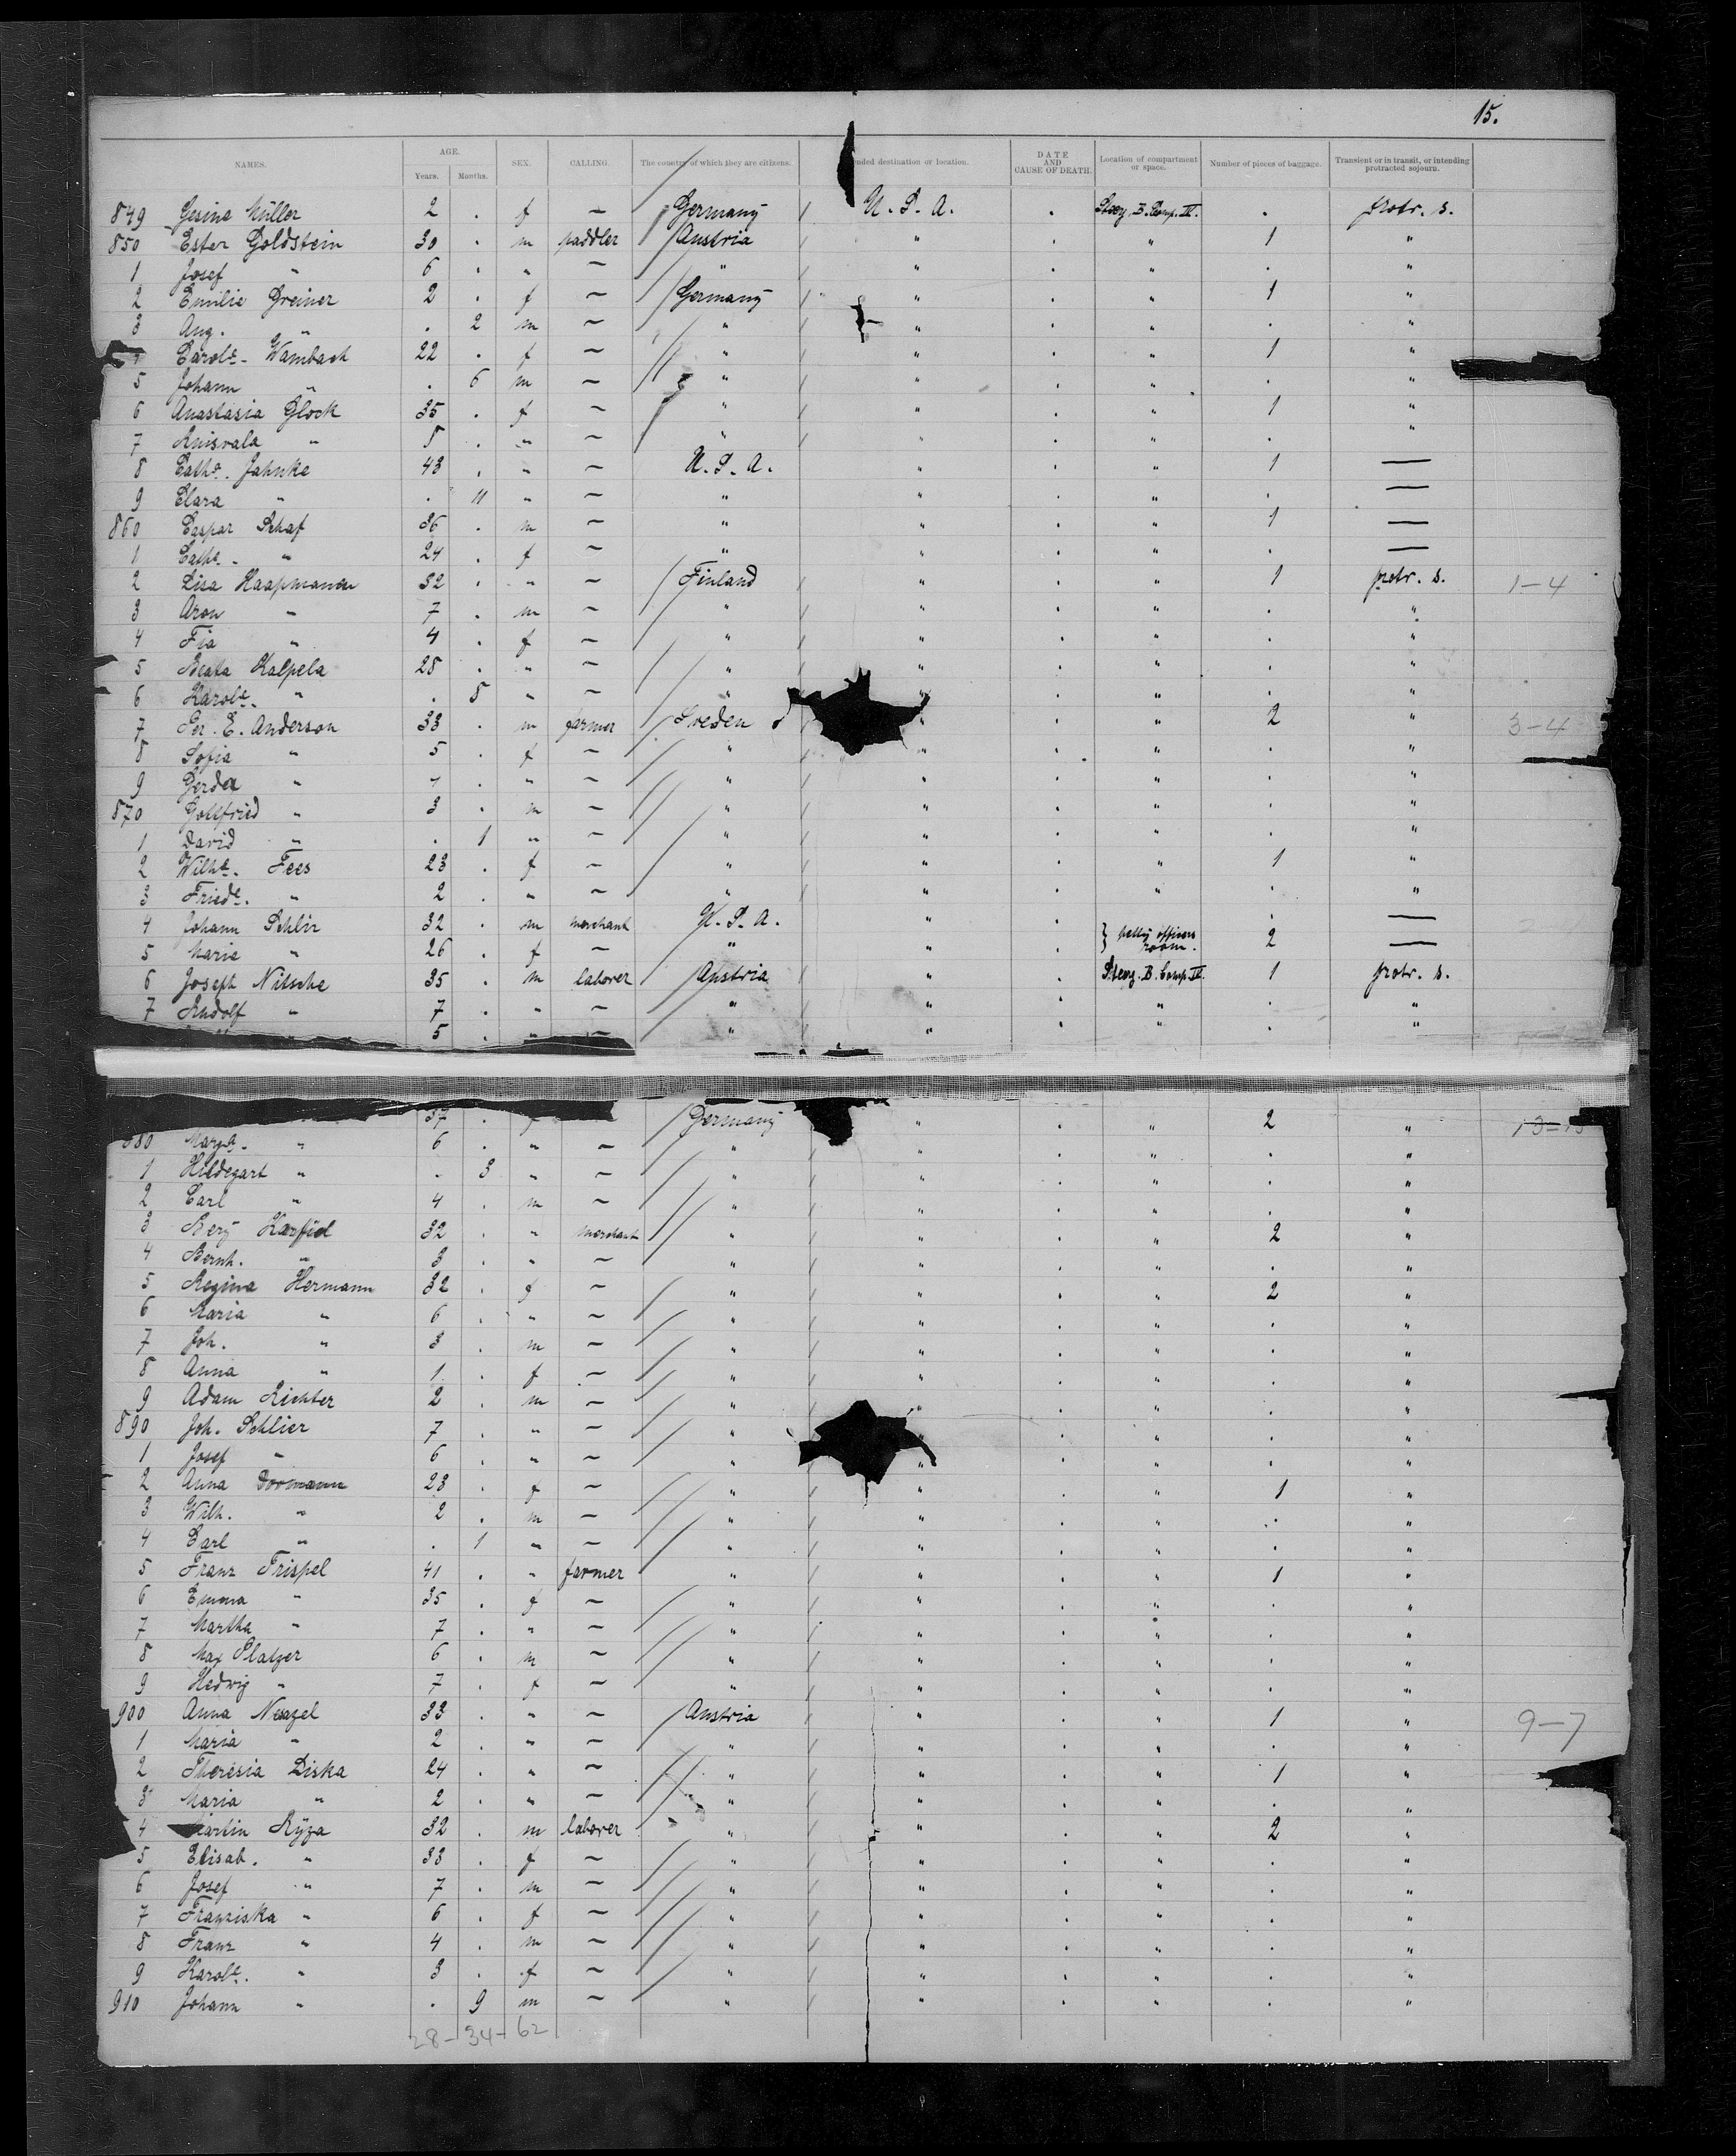 15.
NAMES. AGE. SEX. CALLING. The country of which they are citizens. nded destination or location. DATE AND CAUSE OF DEATH. Location of compartment or space. Number of pieces of baggage. Transient or in transit, or intending protracted sojourn.
Years. Months.
849 Gesine Müller 2 . f — Germany U. S. A. . Steerg. B. Comp. IV. . protr. s.
850 Ester Goldstein 30 . m paddler Austria " . " 1 "
1 Josef " 6 . " — " " . " . "
2 Emilie Greiner 2 . f — Germany " . " 1 "
3 Aug. " . 2 m — " " . " . "
Carole. Wambach 22 . f — " " . " 1 "
5 Johann " . 6 m — " " . " . "
6 Anastasia Glock 35 . f — " " . " 1 "
7 " 5 . " — " " . " . "
8 Cathe. Jahnke 43 . " — U. S. A. " . " 1 —
9 Clara " . 11 " — " " . " . —
860 Caspar Schaf 36 . m — " " . " 1 —
1 Cathe. " 24 . f — " " . " . —
2 Lisa Haapmanen 32 . " — Finland " . " 1 protr. s. 1-4
3 Aron " 7 . m — " " . " . "
4 Fia " 4 . f — " " . " . "
5 Beata Kalpela 28 . " — " " . " . "
6 Karole. " . 8 " — " " . " . "
7 Per. E. Anderson 33 . m farmer Sveden " . " 2 " 3-4
8 Sofia " 5 . f — " " . " . "
9 Gerda " 4 . " — " " . " . "
870 Gottfried " 3 . m — " " . " . "
1 David " . 1 " — " " . " . "
2 Wilhe. Fees 23 . f — " " . " 1 "
3 Friede. " 2 . " — " " . " . "
4 Johann Schlir 32 . m merchant U. S. A. " . } petty officers . —
5 Marie " 26 . f — " " . } room. 2 —
6 Joseph Nitsche 35 . m laborer Austria " . Steerg. B. Comp. IV. 1 protr. s.
7 Rudolf " 7 . " — " " . " . "
5 . " — " " . " . "
37 . f Germany " . " 2 "
880 " 6 . " — " " . " . "
1 Hildegart " . 3 " — " " . " . "
2 Carl " 4 . m — " " . " . "
3 Karfiol 32 . " merchant " " . " 2 "
4 Bernh. " 3 . " — " " . " . "
5 Regina Hermann 32 . f — " " . " 2 "
6 Maria " 6 . " — " " . " . "
7 Joh. " 3 . m — " " . " . "
8 Anna " 1 . f — " " . " . "
9 Adam Richter 2 . m — " " . " . "
890 Joh. Schlier 7 . " — " " . " . "
1 Josef " 6 . " — " " . " . "
2 Anna Dormann 23 . f — " " . " 1 "
3 Wilh. " 2 . m — " " . " . "
4 Carl " . 1 " — " " . " . "
5 Franz Trispel 41 . " farmer " " . " 1 "
6 Emma " 35 . f — " " . " . "
7 Martha " 7 . " — " " . " . "
8 Max Platzer 6 . m — " " . " . "
9 Hedwig " 7 . f — " " . " . "
900 Anna 33 . " — Austria " . " 1 " 9-7
1 Maria " 2 . " — " " . " . "
2 Theresia Liska 24 . " — " " . " 1 "
3 Maria " 2 . " — " " . " . "
4 Martin Ryza 32 . m laborer " " . " 2 "
5 Elisab. " 33 . f — " " . " . "
6 Josef " 7 . m — " " . " . "
7 Franziska " 6 . f — " " . " . "
8 Franz " 4 . m — " " . " . "
9 Karole. " 3 . f — " " . " . "
910 Johann " . 9 m — " " . " . "
28-34-62